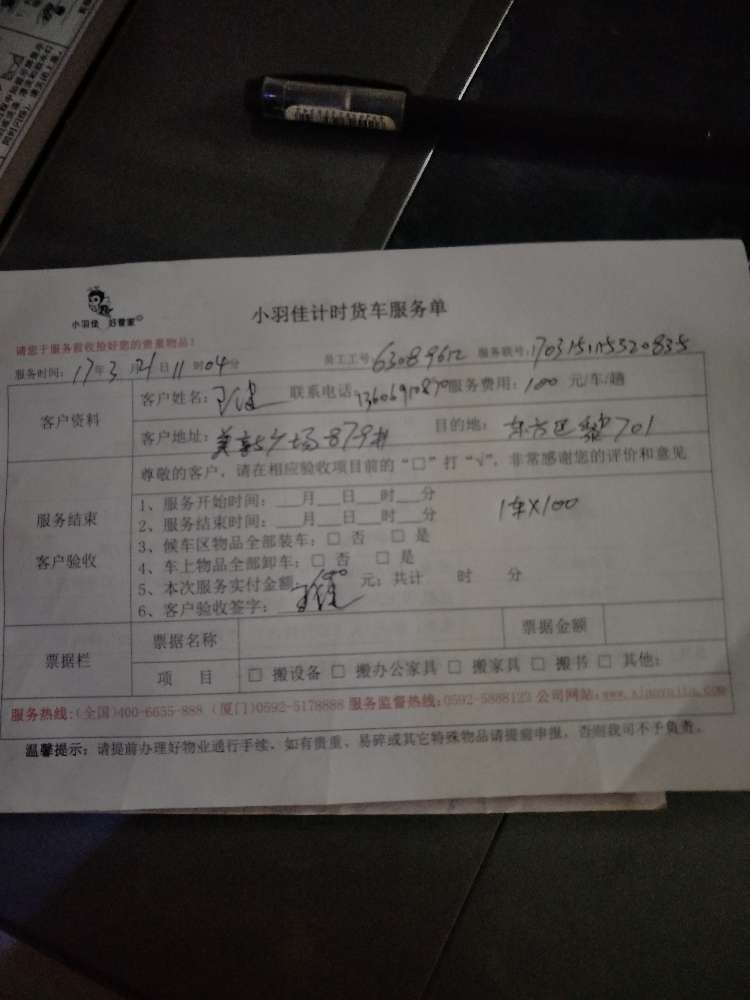 小羽佳 好管家
小羽佳计时货车服务单
请您于服务前收捡好您的贵重物品！
服务时间：17年3月21日11时04分 员工工号：63089612 服务联号：
客户资料
客户姓名： 联系电话： 服务费用：100 元/车/趟
客户地址： 广场879# 目的地： 701
服务结束
客户验收
尊敬的客户，请在相应验收项目前的“□”打“√”，非常感谢您的评价和意见
1、服务开始时间：___月___日___时___分
1车X100
2、服务结束时间：___月___日___时___分
3、候车区物品全部装车：□ 否 □ 是
4、车上物品全部卸车：□ 否 □ 是
5、本次服务实付金额： 元；共计 时 分
6、客户验收签字：
票据栏
票据名称 票据金额
项 目 □ 搬设备 □ 搬办公家具 □ 搬家具 □ 搬书 □ 其他：
服务热线：(全国)400-6655-888 (厦门)0592-5178888 服务监督热线：0592-5888123 公司网站：www.xiaoyujia.com
温馨提示：请提前办理好物业通行手续，如有贵重、易碎或其它特殊物品请提前申报，否则我司不予负责。